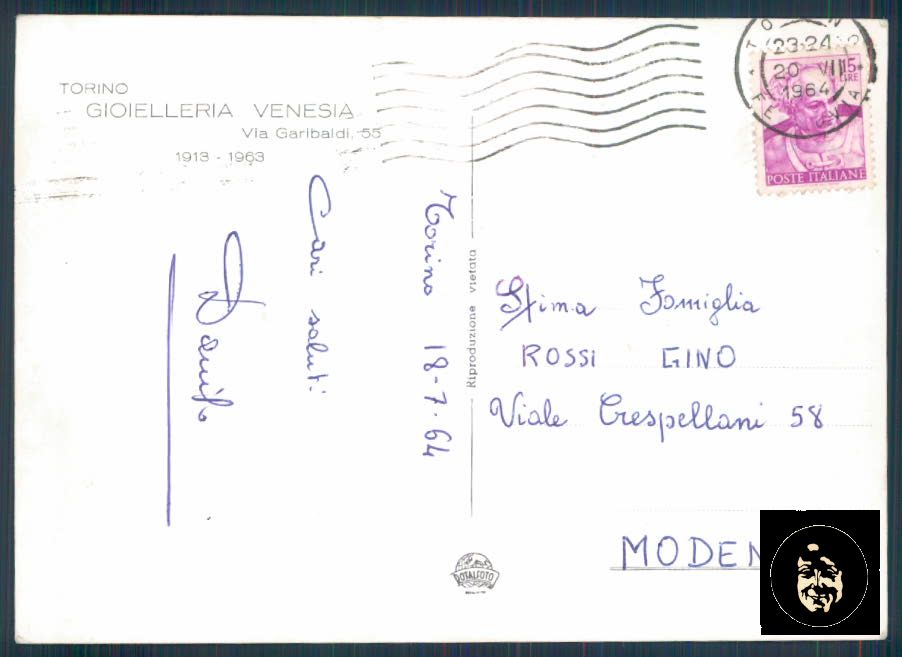 TORINO
GIOIELLERIA VENESIA
Via Garibaldi, 55
1913 - 1963
Torino 18-7-64
Cari saluti
Danilo
Riproduzione vietata
ROTALFOTO
23-24
20 VII
1964
15
LIRE
POSTE ITALIANE
Stima Famiglia
ROSSI GINO
Viale Crespellani 58
MODEN